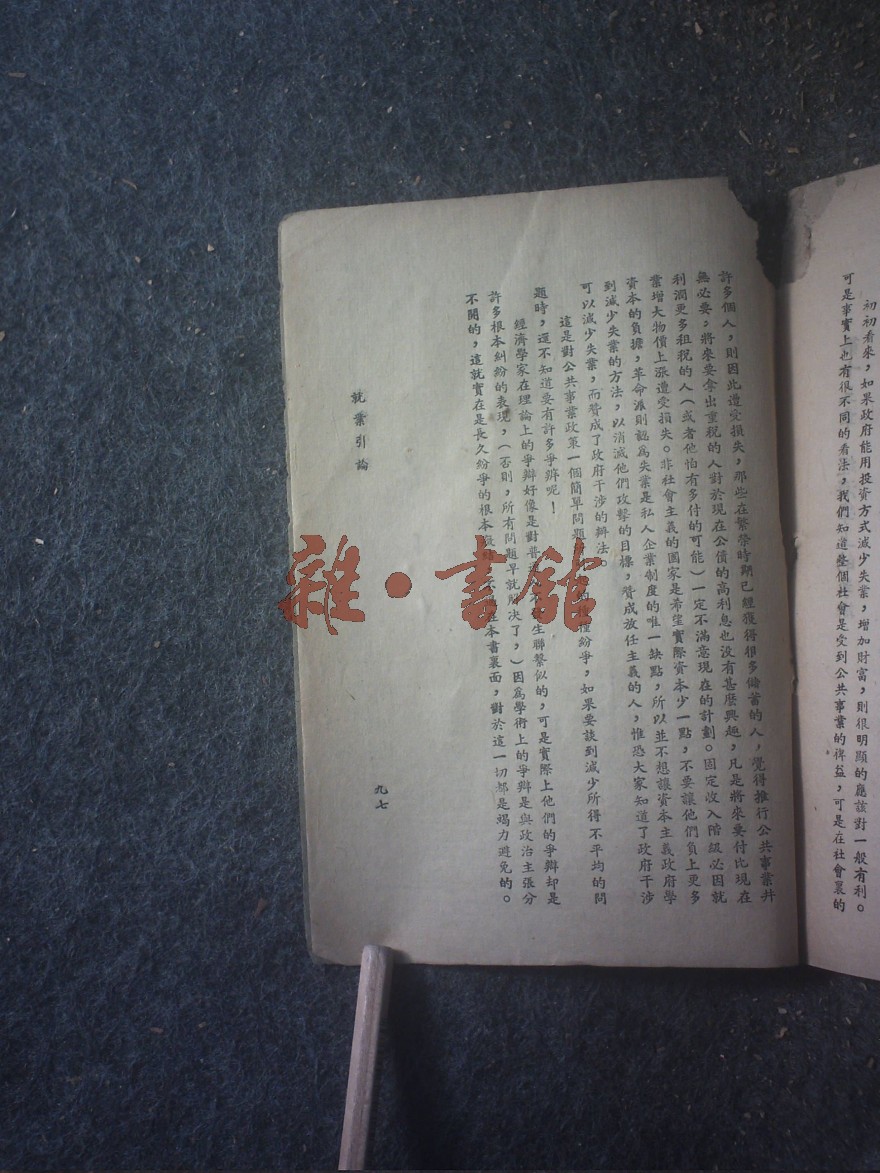 初初看來,如果政府能用投資方式減少失業,增加財富,則很明顯的應該對一般有利。
可是事實上也有很不同的看法,我們知道整個社會是受到公共事業的裨益,可是在社會裏的
許多個人,則因此遭受損失,那些在繁榮時期已經獲得很多儲蓄的人,覺得推行公共事業并
無必要,將來要拿出重稅的人對於現在公債的高利息也沒有甚麼興趣,凡是將來要付比現在
利潤更多租稅的人(或者他怕有多付的可能)一定不滿意現在的計劃。固定收入階級必因就
業增大物價上漲遭受損失。非社會主義的國家是希望實際資本少一點,不要讓他們負上更多
資本的負擔,革命派則認為失業是私人企業制度的唯一缺點,所以並不想讓資本主義政府學
到減少失業的方法,以消滅他們攻擊的目標,贊成放任主義的人,惟恐大家知道了政府干涉
可以減少失業,而贊成了政府干涉的辦法。
這是對公共事業政策一個簡單問題 種紛爭,如果要談到減少所得不平均的問
題時,還不知道要有許多爭辨呢!
經濟學家在理論上的爭辯好像是對普 生聯繫似的,可是實際上他們的爭辯却是
許多根本糾紛的表現,(否則,所有問題早就解決了,)因為學術上的爭辯是與政治主張分
不開的,這就實在是長久紛爭的根本 在本書裏面,對於這一切都是竭力避免的。
就業引論
九七
雜·書館